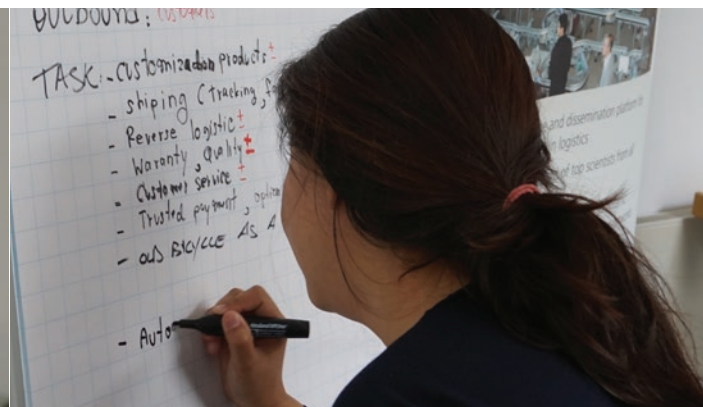 OUTBOUND: customers
TASK:- customization products ±
- shiping (Tracking,
- Reverse logistic ±
- Warranty, Quality ±
- Customer service ±
- Trusted payment,
- OLD BICYCLE AS A
- Auto
and dissemination platform
in logistics
of top scientists from all